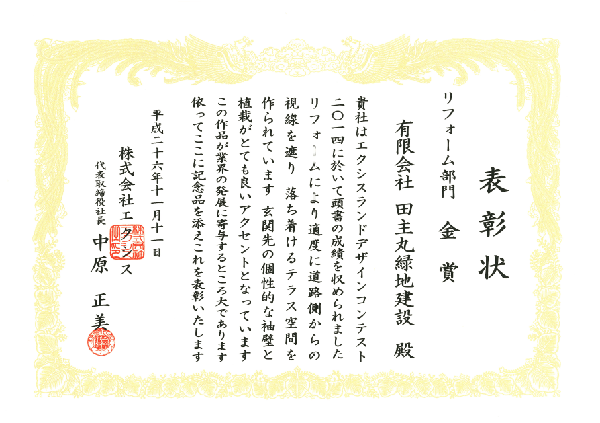 表彰状
リフォーム部門 金賞
有限会社 田主丸緑地建設 殿
貴社はエクシスランドデザインコンテスト
二〇一四に於いて頭書の成績を収められました
リフォームにより適度に道路側からの
視線を遮り 落ち着けるテラス空間を
作られています 玄関先の個性的な袖壁と
植栽がとても良いアクセントとなっています
この作品が業界の発展に寄与するところ大であります
依ってここに記念品を添えこれを表彰いたします
平成二十六年十一月十一日
株式会社エクシス
代表取締役社長 中原 正美